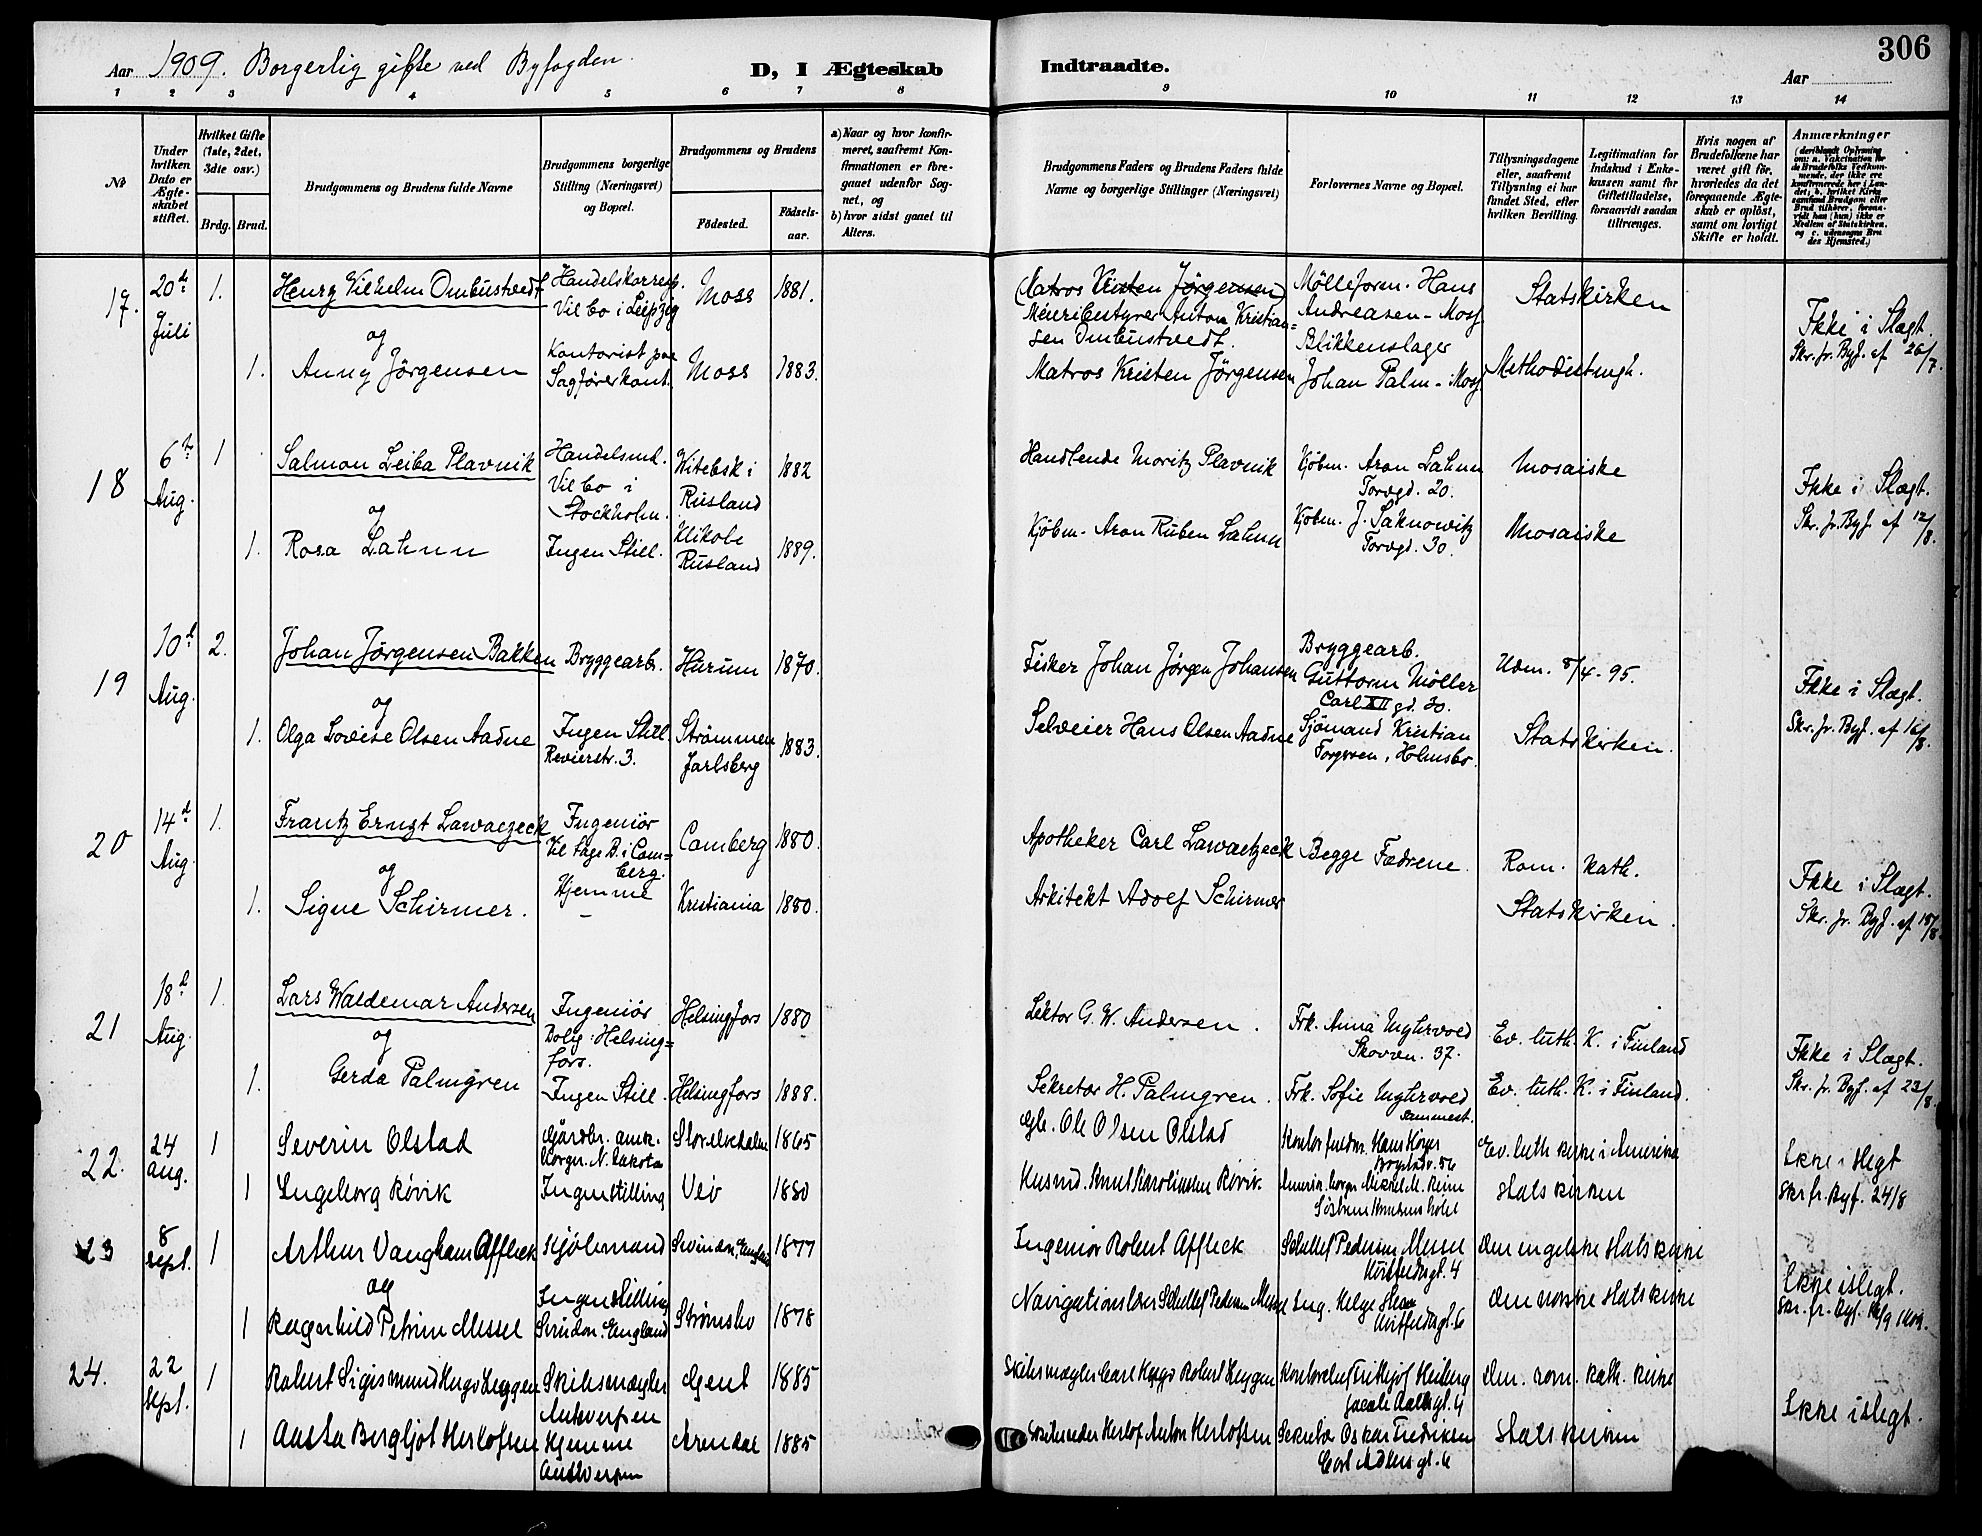 Aar 1909. Borgerlig gifte ved Byfogden.
D, I Ægteskab
Indtraadte.
306
Aar
1 2 3 4 5 6 7 8 9 10 11 12 13 14
No
Under hvilken Dato er Ægteskabet stiftet.
Hvilket Gifte (1ste, 2det, 3dte osv.)
Brdg. Brud.
Brudgommens og Brudens fulde Navne
Brudgommens borgerlige Stilling (Næringsvei) og Bopæl.
Brudgommens og Brudens
Fødested.
Fødsels-aar.
a) Naar og hvor konfirmeret, saafremt Konfirmationen er foregaaet udenfor Sognet, og
b) hvor sidst gaaet til Alters.
Brudgommens Faders og Brudens Faders fulde Navne og borgerlige Stillinger (Næringsvei)
Forlovernes Navne og Bopæl.
Tillysningsdagene eller, saafremt Tillysning ei har fundet Sted, efter hvilken Bevilling.
Legitimation for Indskud i Enkekassen samt for Giftetilladelse, forsaavidt saadan tiltrænges.
Hvis nogen af Brudefolkene har været gift før, hvorledes da det foregaaende Ægteskab er opløst, samt om lovligt Skifte er holdt.
Anmærkninger
17. 20de Juli 1. Henry Vilhelm Ombustvedt
Handelskorresp.
Vil bo i Leipzig
Moss 1881.
(Matros Kristen Jørgensen)
Meieribestyrer Anton Kristian=
sen Ombustvedt.
Mølleform. Hans
Andreasen - Moss
Statskirken
og
1. Anny Jørgensen
Kontorist paa
Sagførerkont.
Moss 1883.
Matros Kristen Jørgensen
Blikkenslager
Johan Palm - Moss
Methodistmgh.
Ikke i Slægt.
Skr. fr. Byf. af 26/7.
18 6te Aug. 1 Salmon Leiba Plavnik
Handelsmd.
Vil bo i
Stockholm.
Witebsk i
Rusland
1882
Handlende Moritz Plavnik
Kjøbm. Aron Lahnn
Torvgd. 20.
Mosaiske
og
1. Rosa Lahnn
Ingen Still.
Klikole
Rusland
1889.
Kjøbm. Aron Ruben Lahnn
Kjøbm. J. Saknowitz
Torvgd. 30.
Mosaiske
Ikke i Slægt.
Skr. fr. Byf. af 12/8.
19 10d Aug. 2. Johan Jørgensen Bakken
Bryggearb.
Hurum 1870.
Fisker Johan Jørgen Johansen
Bryggearb.
Guttorm Møller
Carl XII gd. 30.
Udm. 8/4. 95.
og
1. Olga Lovise Olsen Aadne
Ingen Still.
Revierstr. 3.
Strømmen
Jarlsberg
1883.
Selveier Hans Olsen Aadne
Sjømand Kristian
Torgersen, Holmsbo.
Statskirken.
Ikke i Slægt.
Skr. fr. Byf. af 16/8.
20 14d Aug. 1. Frantz Ernst Lawaczeck
Ingeniør
Camberg 1880.
Apotheker Carl Lawaetzeck
Begge Fædrene.
Rom. kath.
og
1. Signe Schirmer.
Hjemme
Kristiania 1880.
Arkitekt Adolf Schirmer
Statskirken.
Ikke i Slægt.
Skr. fr. Byf. af 18/8.
21 18d Aug. 1. Lars Waldemar Andersen
Ingeniør
Bolig: Helsing=
fors.
Helsingfors 1880
Lektor G. W. Andersen.
Frk. Anna Myhrvold
Skovvn. 37.
Ev. luth. K. i Finland
og
1. Gerda Palmgren
Ingen Still.
Helsingfors 1888.
Sekretær H. Palmgren.
Frk. Sofie Myhrvold
sammest.
Ev. luth. K. i Finland.
Ikke i Slægt.
Skr. fr. Byf. af 23/8.
22. 24 aug. 1 Severin Olstad
Gårdbr. amr.
borger N. Dakota
Storelvedalen 1865
Gbr. Ole Olsen Olstad
Ev. luth kirke i Amerika
1 Ingeborg Røvik
Ingen stilling
Veø 1880
Husmd. Knut Karoliussen Røvik
statskirken
Ikke i slegt
Skr. fr. Byf. 24/8
23 8 sept. 1 Arthur Vaugham Affleck
Kjøbmand
Swindon, England 1877
Ingeniør Robert Affleck
Schellef Pedersen Messel
Huitfeldtsgt. 4
den engelske statskirke
og
1 Ragnhild Petrine Messel
Ingen stilling
Swindon. England
Strømsbo 1878
Navigationslærer Schellef Pedersen Messel
Ing. Helge
Huitfeldtsgt. 6
den norske statskirke
Ikke i slegt.
Skr. fr. Byf.
24. 22 sept. 1 Robert Sigismund Hugo Heggen
Skibsmægler
Antwerpen
Gent 1885
Skibsmægler Carl Hugo Robert Heggen
Fritjof Heiberg
Jacob Aallsgt. 4
den. rom. kath. kirke
1 Aasta Bergljot Herlofsen
Hjemme
Antwerpen
Arendal 1885
Skibsreder Herlof Anton Herlofsen
Sekretær Oskar Fredriksen
statskirken
Ikke i slegt.